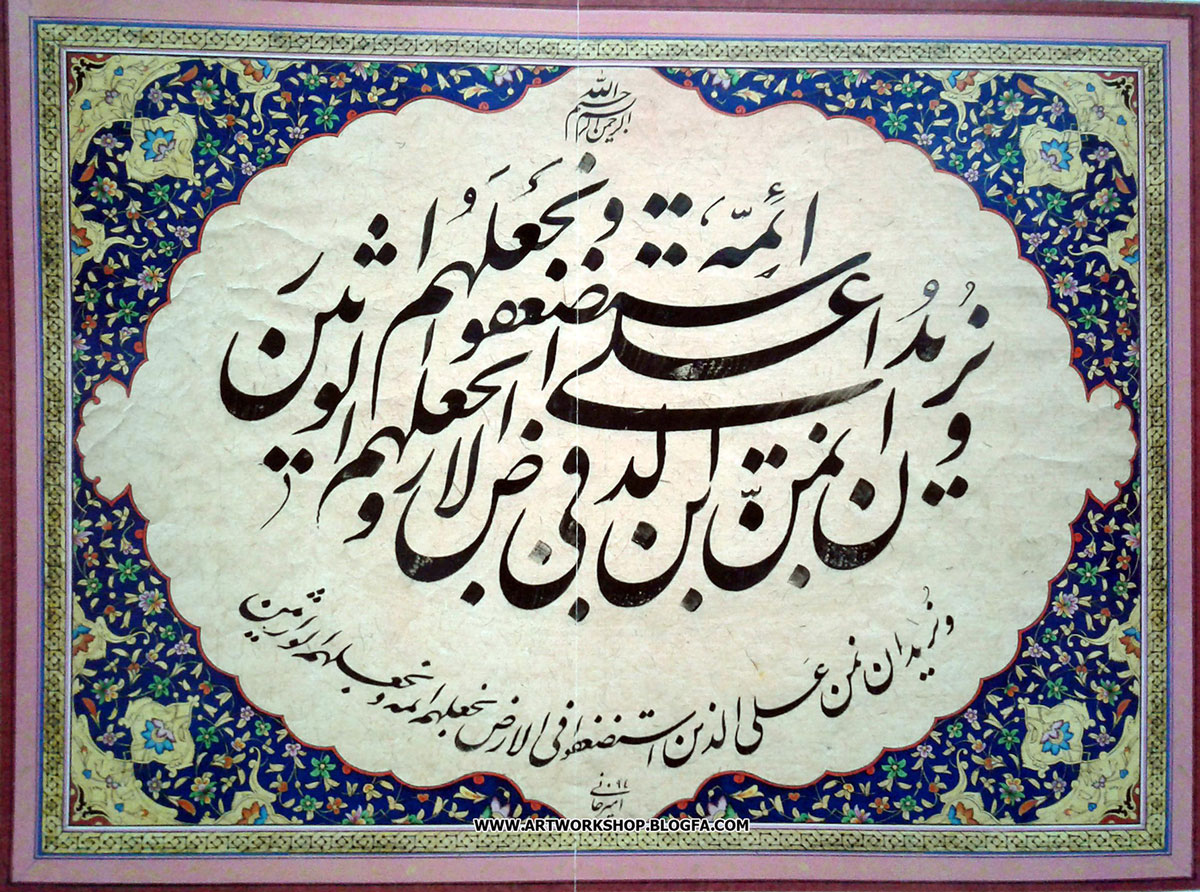 بسم الله الرحمن الرحیم
و نُریدُ ان نمنّ علی الذین استضعفوا فی الارض و نجعلهم ائِمّه و نَجعَلَهُم الوارثین
و نُرید ان نمن عَلی الذین استضعفوا فی الارض نجعلهم ائمه و نجعلهم الوارثین
امیرخانی
WWW.ARTWORKSHOP.BLOGFA.COM